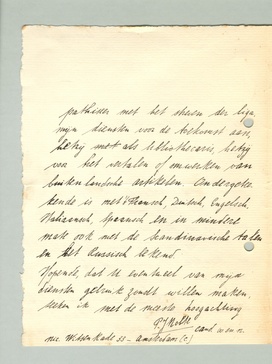 pathiseer met het streven der liga,
mijn diensten voor de toekomst aan,
hetzij als bibliothecaris, hetzij
voor het vertalen of omwerken van
buitenlandsche artikelen. Ondergetee-
kende is met 't Fransch, Duitsch, Engelsch,
Italiaansch, Spaansch en in mindere
mate ook met de Scandinavische talen
en het Russisch bekend.
Hopende, dat U eventueel van mijn
diensten gebruik zoudt willen maken,
teeken ik met de meeste hoogachting
cand.
Kade 22 - Amsterdam (C)